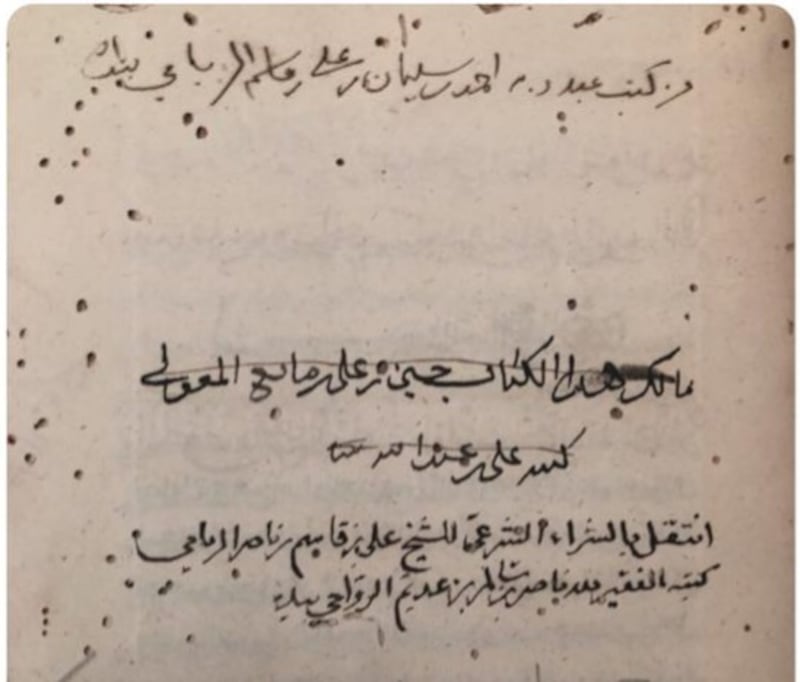 من كتب عبد ربه احمد بن سليمان بن علي بن قاسم الريامي بيده
مالك هذا الكتاب حسين بن علي بن مانع المعولي
كتبه علي بن عبدالله بيده
انتقل بالشراء الشرعي للشيخ علي بن قاسم بن ناصر الريامي
كتبه الفقير لله ناصر بن سالم بن عديم الرواحي بيده